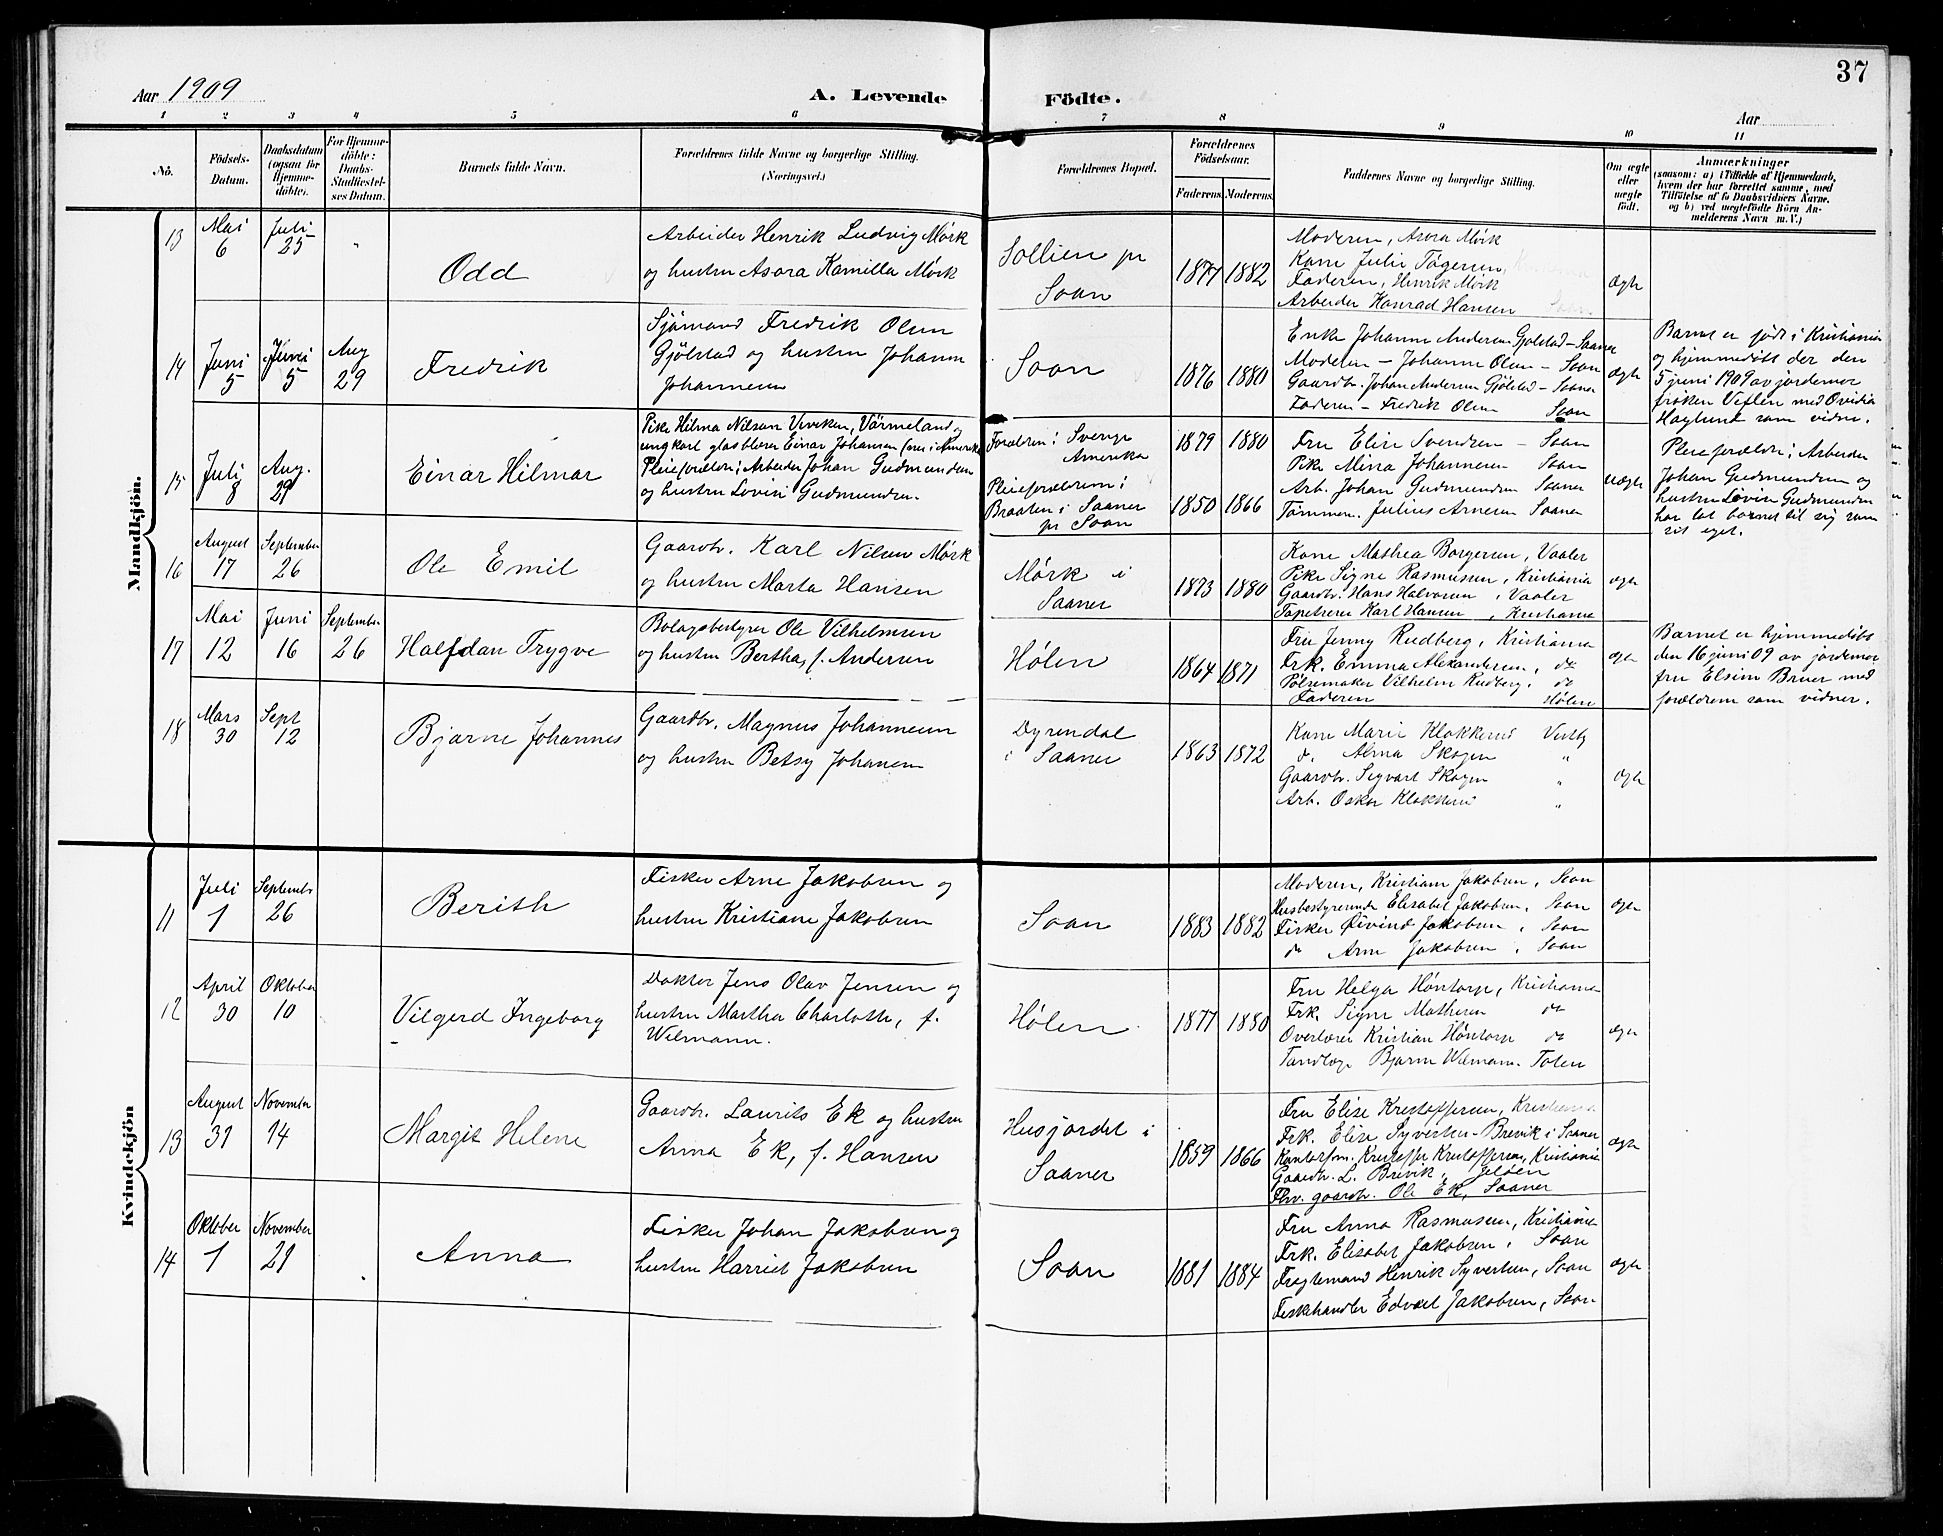 37
Aar 1909
A. Levende Födte.
Aar
1 2 3 4 5 6 7 8 9 10 11
No.
Födsels-
Datum.
Daabsdatum
(ogsaa for
Hjemme-
döbte).
For Hjemme-
döbte:
Daabs-
Stadfæstel-
ses Datum.
Barnets fulde Navn.
Forældrenes fulde Navne og borgerlige Stilling.
(Næringsvei.)
Forældrenes Bopæl.
Forældrenes
Födselsaar.
Faderens Moderens
Faddernes Navne og borgerlige Stilling.
Om ægte
eller
uægte
født.
Anmærkninger
(saasom: a) i Tilfælde af Hjemmedaab,
hvem der har forrettet samme, med
Tilföielse af to Daabsvidners Navne.
og b) ved uægtefödte Börn An-
melderens Navn m. V.)
Mandkjön.
13
Mai
6
Juli
25
"
Odd
Arbeider Henrik Ludvig Mørk
og hustru Asora Kamilla Mørk
Sollien pr
Soon
1877 1882
Moderen, Asora Mørk
Kone Julie Tøgersen,
Faderen, Henrik Mørk
Arbeider Konrad Hansen
ægte
14
Juni
5
Juni
5
Aug
29
Fredrik
Sjømand Fredrik Olsen
Gjølstad og hustru Johanne
Johannesen
Soon
1876 1880
Enke Johanne Andersen Gjølstad - Saaner
Moderen - Johanne Olsen - Soon
Gaardbr. Johan Andersen Gjølstad - Saaner
Faderen - Fredrik Olsen Soon
ægte
Barnet er født i Kristiania
og hjemmedøbt der den
5 juni 1909 av jordemor
frøken Veflen med Ovidia
Haglund som vidne.
15
Juli
8
Aug.
29
Einar Hilmar
Pike Hilma Nilsson Viveken, Värmeland og
ungkarl glasblæser Einar Johansen for. i Amerika
Pleieforældre; Arbeider Johan Gudmundsen
og hustru Lovise Gudmundsen.
Forældrene i Sverige
Amerika
Pleieforældrene i
Braaten i Saaner
pr Soon
1879 1880
1850 1866
Fru Elise Svendsen - Soon
Pike Mina Johannesen Soon
Arb. Johan Gudmundsen Saaner
Tømmerm. Julius Arnesen Saaner
uægte
Pleieforældre; Arbeider
Johan Gudmundsen og
hustru Lovise Gudmundsen
har tat barnet til sig som
sit eget.
16
August
17
September
26
Ole Emil
Gaardbr. Karl Nilsen Mørk
og hustru Marta Hansen
Mørk i
Saaner
1873 1880
Kone Mathea Borgersen, Vaaler
Pike Signe Rasmussen, Kristiania
Gaardbr. Hans Halvorsen, Vaaler
Tapetserer Karl Hansen, Kristiania
ægte
17
Mai
12
Juni
16
September
26
Halfdan Trygve
Bolagsbestyrer Ole Vilhelmsen
og hustru Bertha, f. Andersen
Hølen
1864 1871
Fru Jenny Rudberg, Kristiania
Frk. Emma Alexandersen, do
Pølsemaker Vilhelm Rudberg, do
Faderen Hølen
ægte
Barnet er hjemmedøbt
den 16 juni 09 av jordemor
fru Elsine Bruer med
forældrene som vidner.
18
Mars
30
Sept
12
Bjarne Johannes
Gaardbr. Magnus Johannesen
og hustru Betsy Johansen
Dyrendal
i Saaner
1863 1872
Kone Marie Klokkerud Vestby
d. Alma Skogen "
Gaardbr. Sigvart Skogen "
Arb. Oskar Klokkerud "
ægte
Kvindekjön
11
Juli
1
September
26
Berith
Fisker Arne Jakobsen og
hustru Kristiane Jakobsen
Soon
1883 1882
Moderen, Kristiane Jakobsen, Soon
Husbestyrerinde Elisabet Jakobsen, Soon
Fisker Øivind Jakobsen, Soon
do Arne Jakobsen, Soon
ægte
12
April
30
Oktober
10
Vilgerd Ingeborg
Doktor Jens Olav Jensen og
hustru Martha Charlotte, f.
Wilmann.
Hølen
1877 1880
Fru Helga Høntorp, Kristiania
Frk. Signe Mathesen do
Overlærer Kristian Høntorp do
Tandlæge Bjarne Wilmann. Toten
ægte
13
August
31
November
14
Margit Helene
Gaardbr. Laurits Ek og hustru
Anna Ek, f. Hansen
Husjordet i
Saaner
1859 1866
Fru Elise Kristoffersen, Kristiania
Frk. Elise Syvertsen - Brevik i Saaner
Kontorfm. Kristoffer Kristoffersen, Kristiania
Gaardbr. L. Brevik, Jeløen
Fhv. gaardbr. Ole Ek, Saaner
ægte
14
Oktober
1
November
21
Anna
Fisker Johan Jakobsen og
hustru Harriet Jakobsen
Soon
1881 1884
Fru Anna Rasmussen, Kristiania
Frk. Elisabet Jakobsen, Soon
Fragtemand Henrik Syvertsen, Soon
Fiskehandler Edvart Jakobsen, Soon
ægte